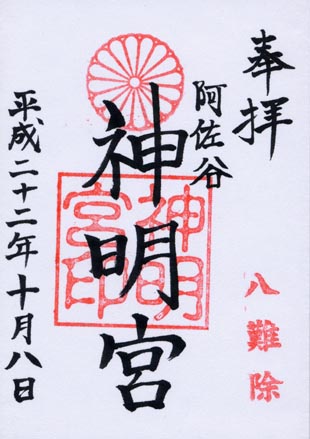 奉拝
八難除
阿佐谷
神明宮
神明宮印
平成二十二年十月八日